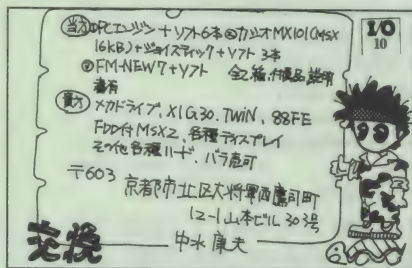 I/O
10
当方 ①PCエンジン+ソフト6本 ②カシオMX101(MSX
16KB)+ジョイスティック+ソフト3本
③FM-NEW7+ソフト 全て箱・付属品・説明
書有
貴方 メガドライブ、X1G30、TWiN、88FE
FDD付MSX2、各種ディスプレイ
その他各種ハード、バラ売可
〒603
京都市北区大将軍西鷹司町
12-1山本ビル303号
中水康夫
交換